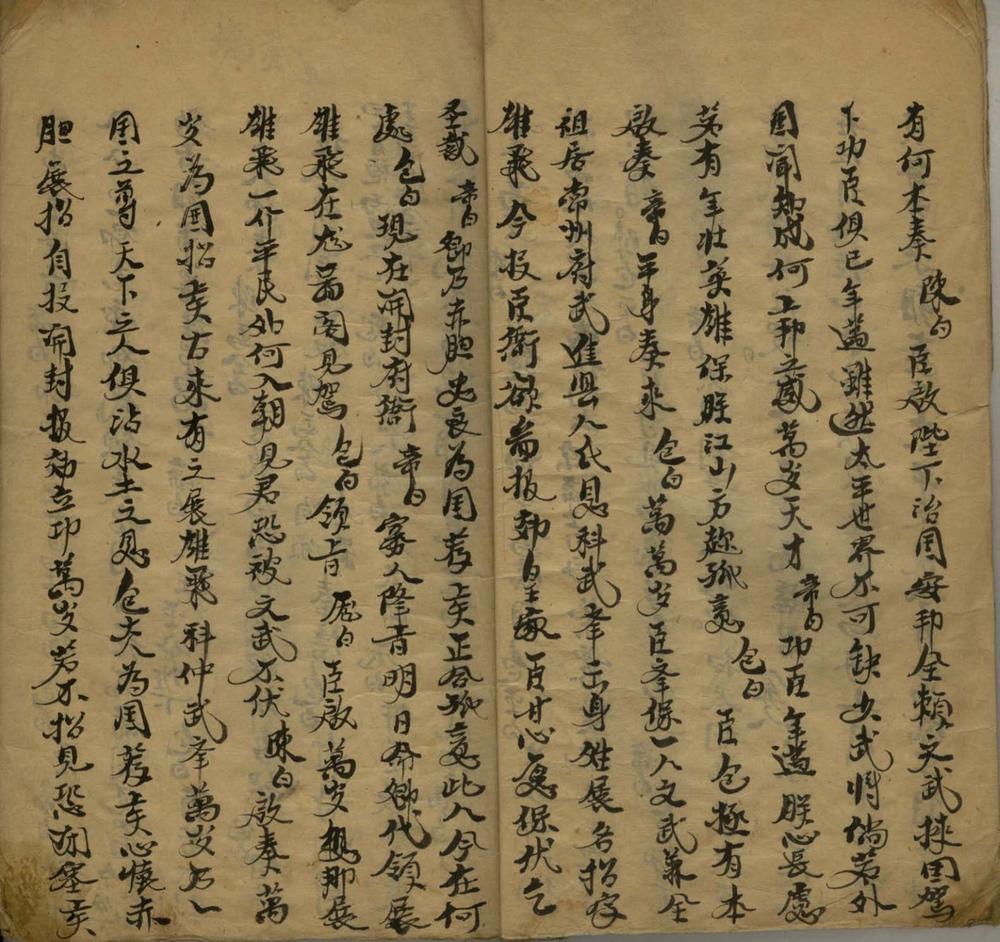 有何本奏 陳白 臣啟陛下治国安邦全頼文武挾囬駕
下功臣俱已年邁雖然太平世界不可缺少武将倘若外
国聞知成何上邦之威萬岁天才 帝白 功臣年邁朕心長慮
若有年壮英雄保朕江山方趂孤意 包白 臣包極有本
啟奏 帝白 平身奏來 包白 萬萬岁臣峯保一人文武兼全
祖居常州府武進縣人氏恩科武峯正身姓展名招字
雄飛今投臣衙欲啚报効皇家臣甘心愿保伏乞
圣裁 帝白 卿乃赤胆忠良為国荐美正合孤意此人今在何
處 包白 現在開封府衙 帝白 寡人降旨明日命卿代領展
雄飛在尨啚閣見駕 包白 領旨 龎白 臣啟萬岁想那展
雄飛一介平民如何入朝見君恐被文武不伏 陳白 啟奏萬
岁為国招美古來有之展雄飛科仲武峯萬岁乃一
国之尊天下之人俱沾水土之恩包夫為国荐美心懐赤
胆展招自投開封报効立功萬岁若不招見恐閉塞美